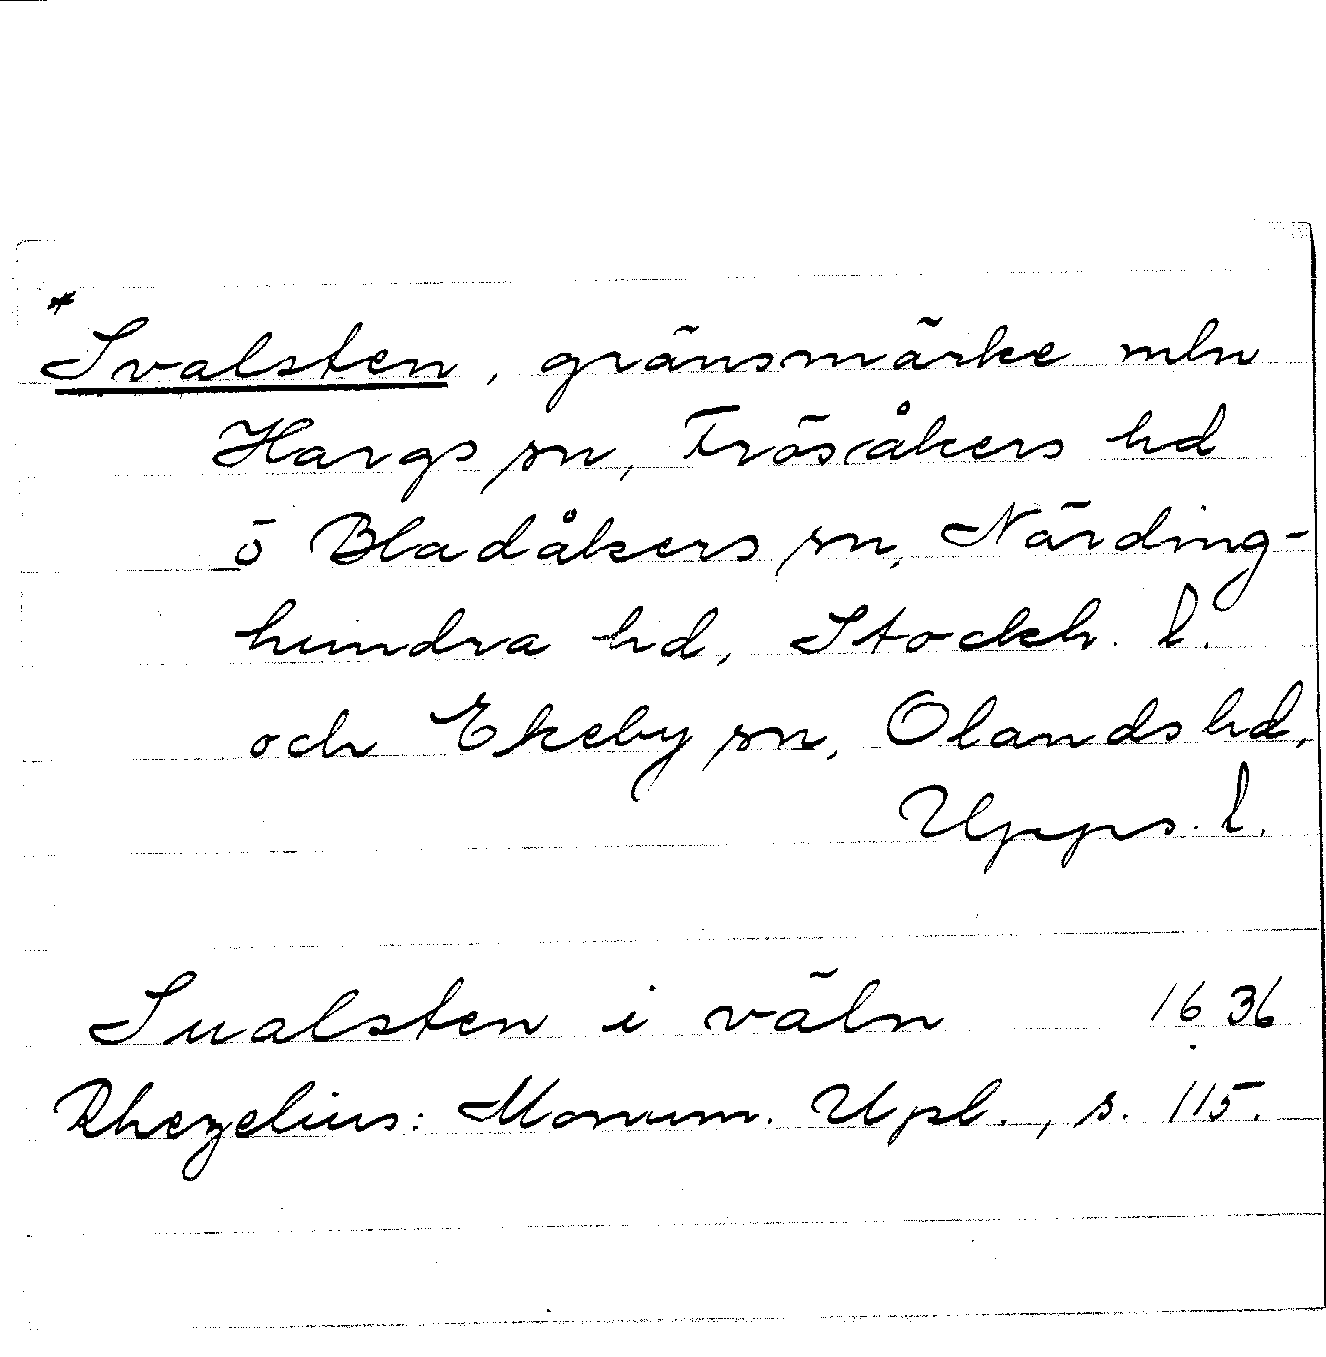 *
Svalsten, gränsmärke mln
Hargs sn, Frösåkers hd
o Bladåkers sn, Närding-
hundra hd, Stockh. l.
och Ekeby sn, Olands hd,
Upps. l.
Sualsten i väln 1636
Rhezelius: Monum. Upl., s. 115.